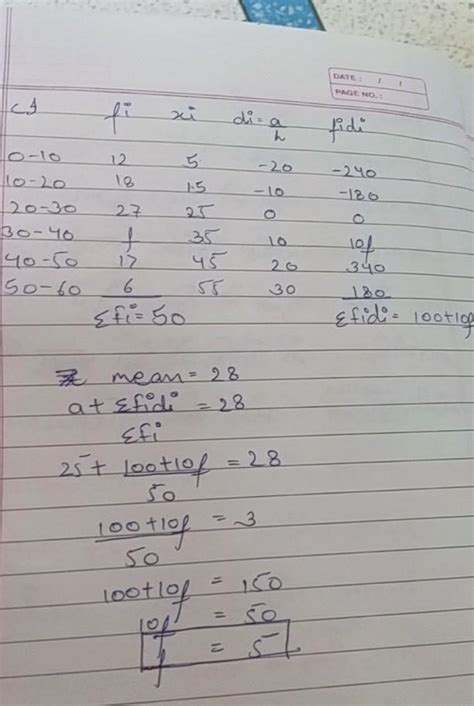 DATE: / /
PAGE NO.:
CI fi xi di = a/h fidi
0-10 12 5 -20 -240
10-20 18 15 -10 -180
20-30 27 25 0 0
30-40 f 35 10 10f
40-50 17 45 20 340
50-60 6 55 30 180
Σfi = 50 Σfidi = 100+10f
mean = 28
a + Σfidi = 28
Σfi
25 + 100+10f = 28
50
100+10f = 3
50
100+10f = 150
10f = 50
f = 5